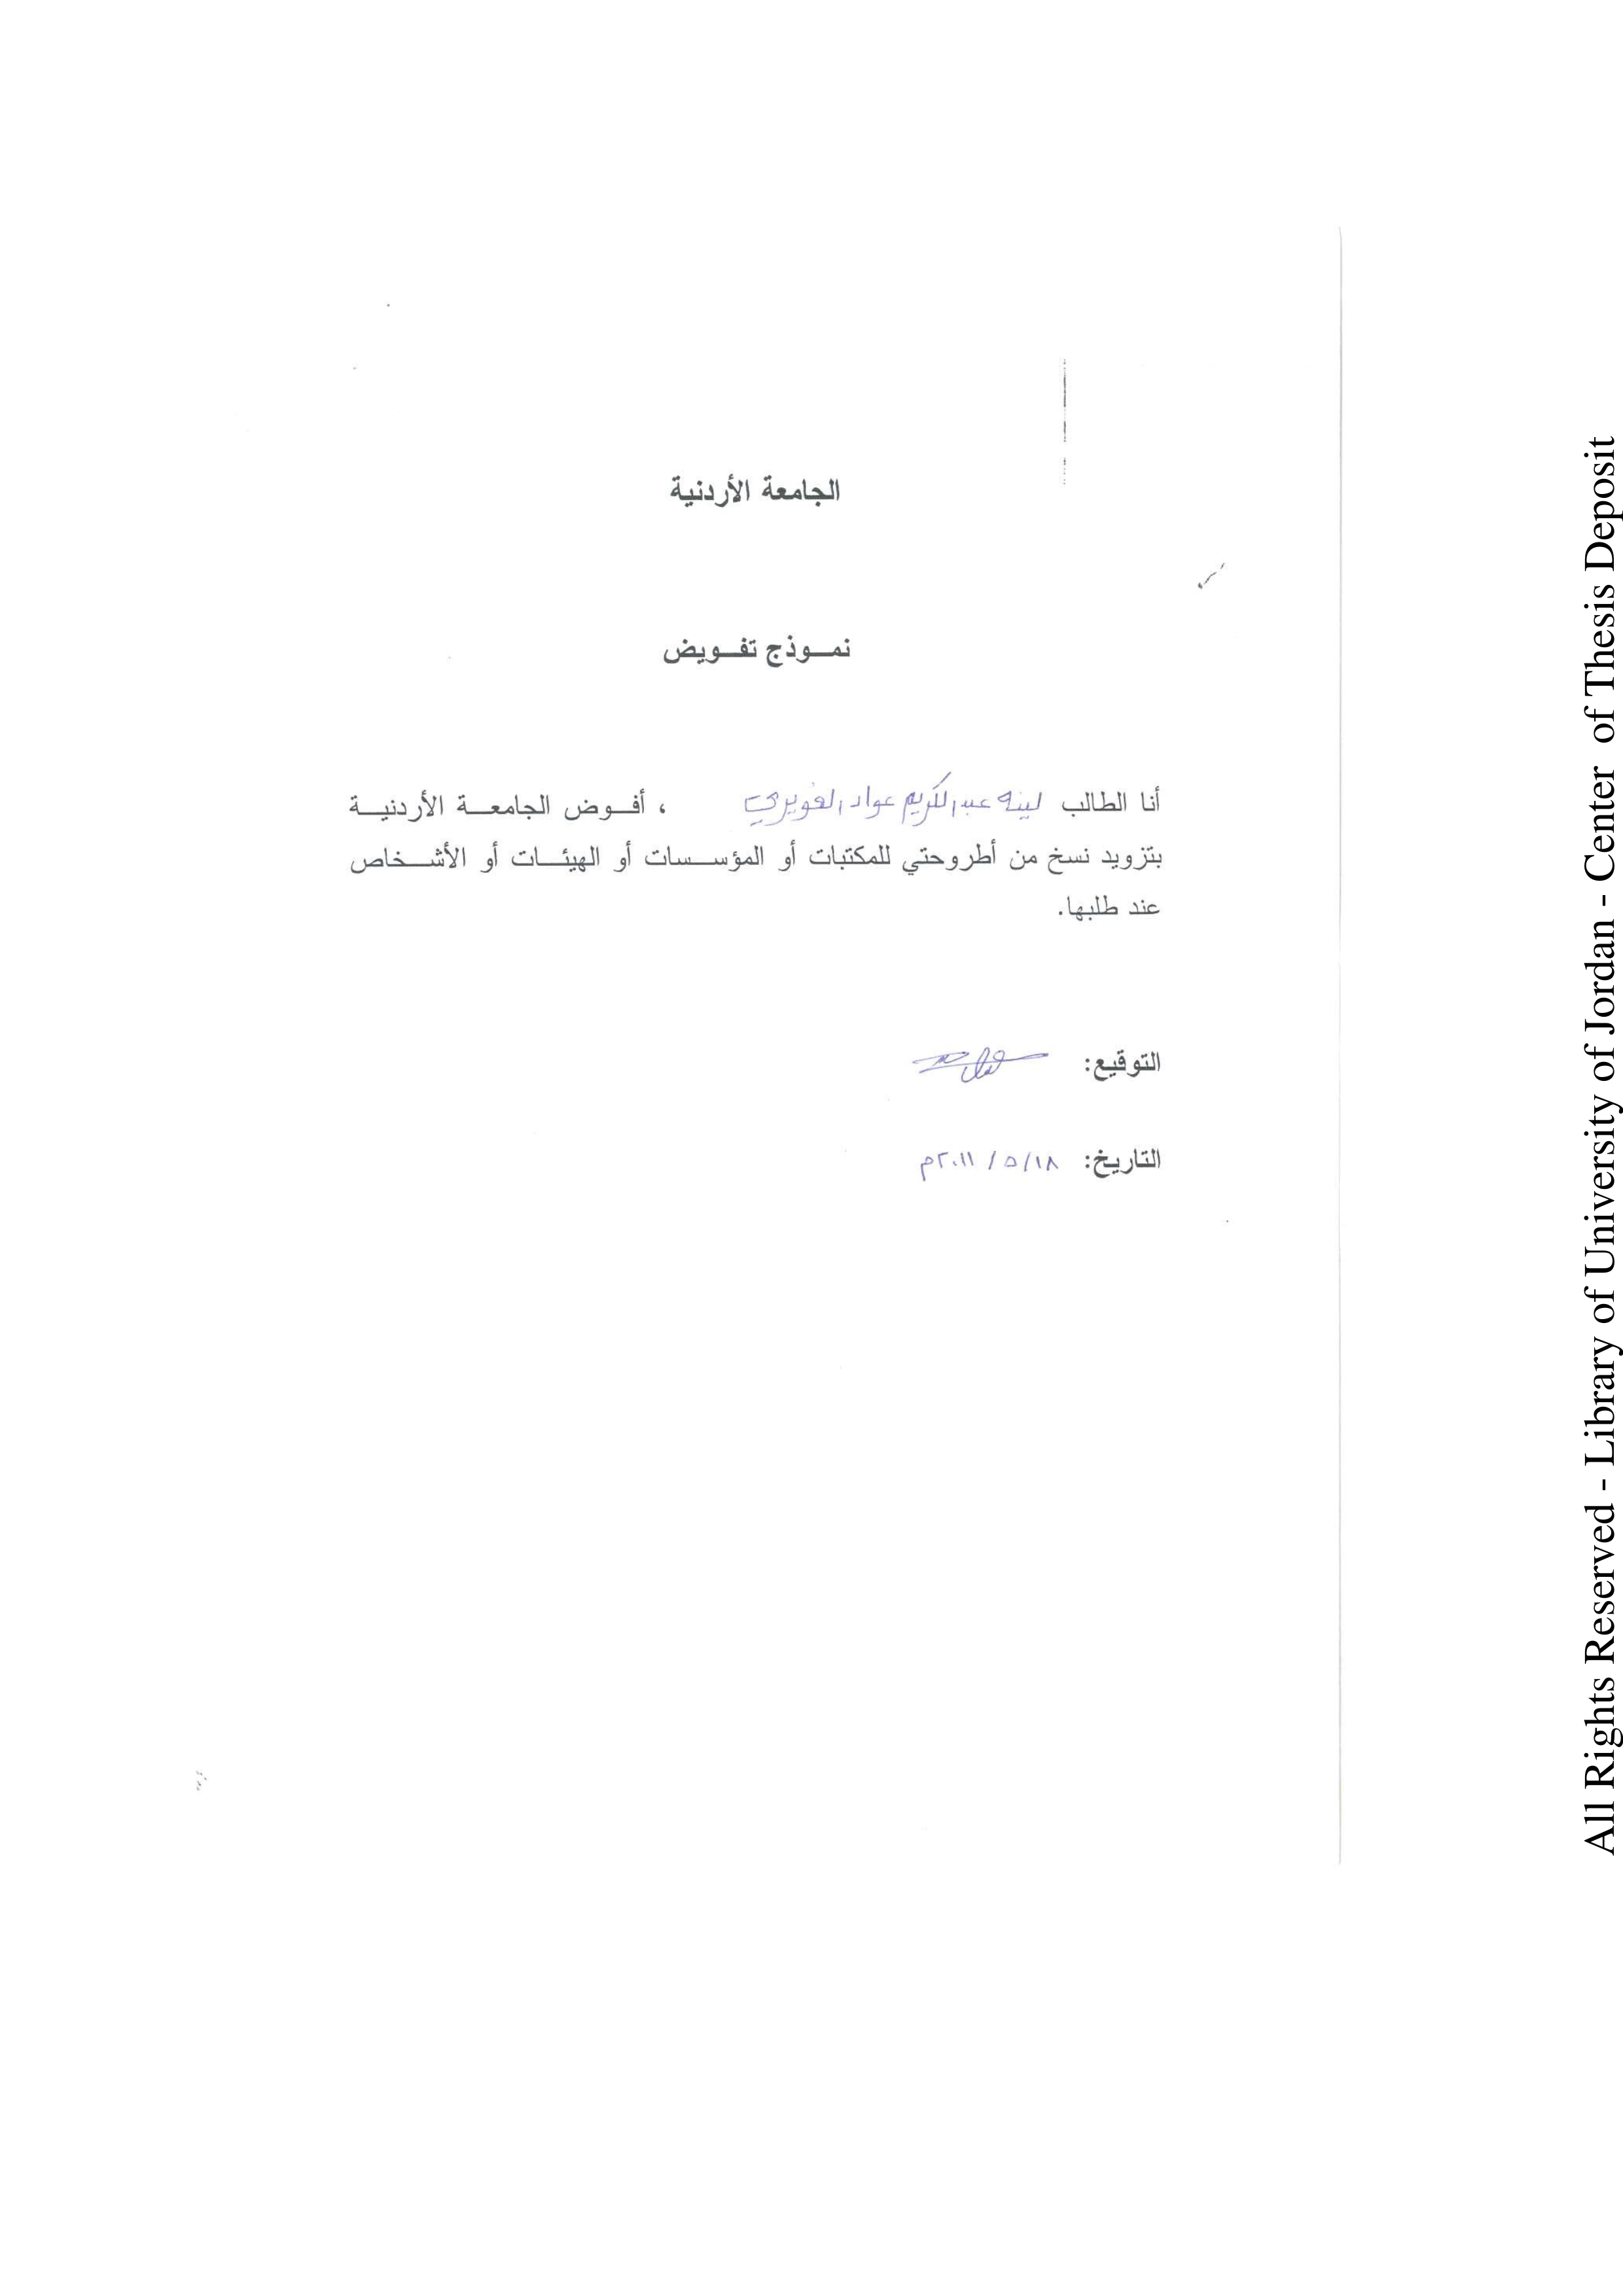 الجامعة الأردنية
نموذج تفويض
أنا الطالب لينه عبدالكريم عواد الغويري ، أفوض الجامعة الأردنية
بتزويد نسخ من أطروحتي للمكتبات أو المؤسسات أو الهيئات أو الأشخاص
عند طلبها.
التوقيع:
التاريخ: ١٨/ ٥/ ٢٠١١م
All Rights Reserved - Library of University of Jordan - Center of Thesis Deposit